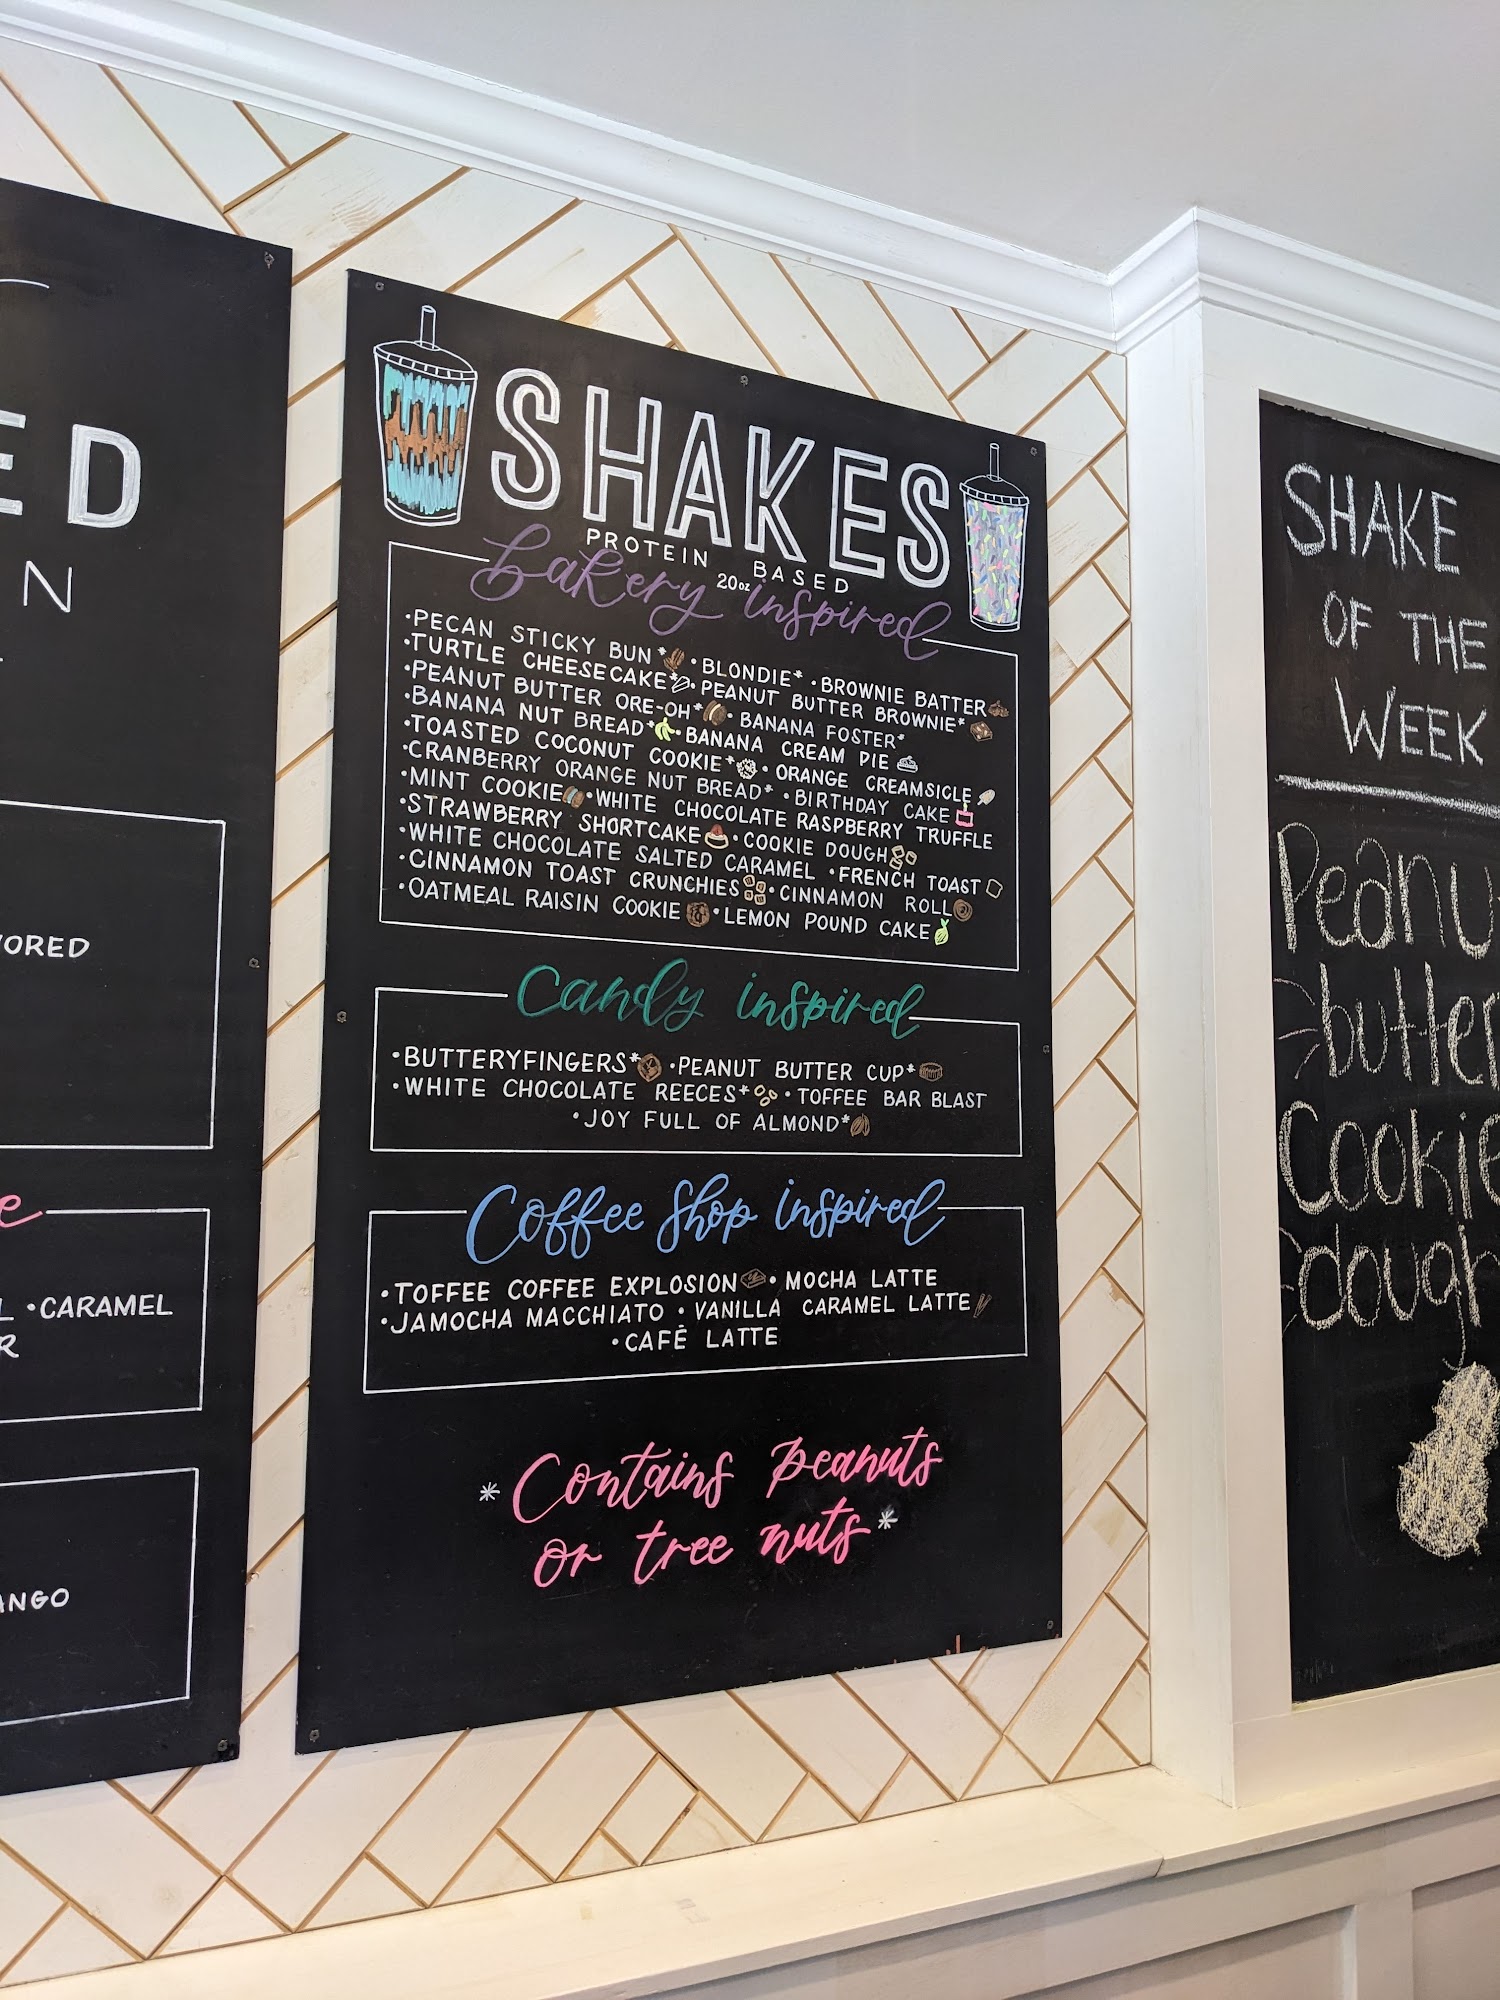 ED
N
VORED
e
L •CARAMEL
R
ANGO
SHAKES
PROTEIN BASED
20oz
bakery inspired
•PECAN STICKY BUN* •BLONDIE* •BROWNIE BATTER
•TURTLE CHEESECAKE* •PEANUT BUTTER BROWNIE*
•PEANUT BUTTER ORE-OH* •BANANA FOSTER*
•BANANA NUT BREAD* •BANANA CREAM PIE
•TOASTED COCONUT COOKIE* •ORANGE CREAMSICLE
•CRANBERRY ORANGE NUT BREAD* •BIRTHDAY CAKE
•MINT COOKIE •WHITE CHOCOLATE RASPBERRY TRUFFLE
•STRAWBERRY SHORTCAKE •COOKIE DOUGH
•WHITE CHOCOLATE SALTED CARAMEL •FRENCH TOAST
•CINNAMON TOAST CRUNCHIES •CINNAMON ROLL
•OATMEAL RAISIN COOKIE •LEMON POUND CAKE
Candy inspired
•BUTTERYFINGERS* •PEANUT BUTTER CUP*
•WHITE CHOCOLATE REECES* •TOFFEE BAR BLAST
•JOY FULL OF ALMOND*
Coffee shop inspired
•TOFFEE COFFEE EXPLOSION •MOCHA LATTE
•JAMOCHA MACCHIATO •VANILLA CARAMEL LATTE
•CAFÉ LATTE
*Contains peanuts
or tree nuts*
SHAKE
OF THE
WEEK
Peanu
butter
Cookie
dough